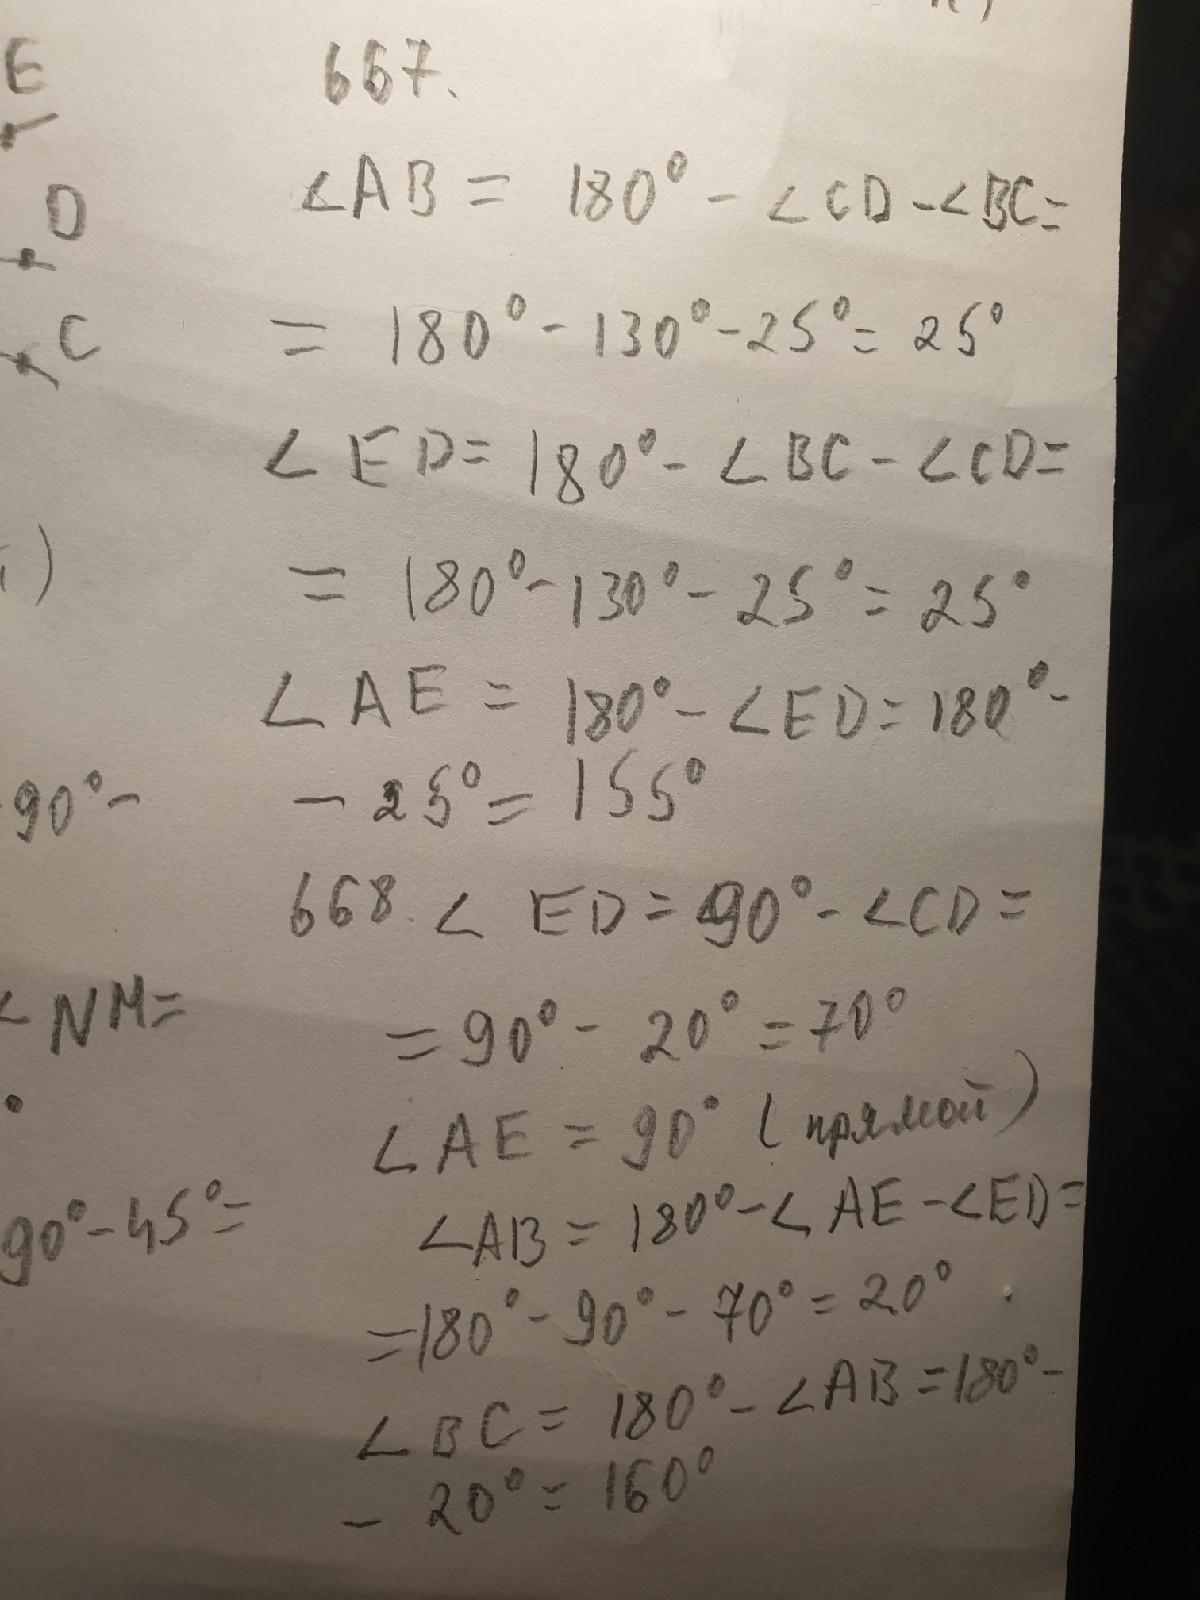 E
667.
∠AB = 180° - ∠CD - ∠BC =
D
= 180° - 130° - 25° = 25°
C
∠ED = 180° - ∠BC - ∠CD =
)
= 180° - 130° - 25° = 25°
∠AE = 180° - ∠ED = 180° -
90° -
- 25° = 155°
668. ∠ED = 90° - ∠CD =
∠NM =
= 90° - 20° = 70°
∠AE = 90° (прямой)
90° - 45° =
∠AB = 180° - ∠AE - ∠ED =
= 180° - 90° - 70° = 20°
∠BC = 180° - ∠AB = 180° -
- 20° = 160°